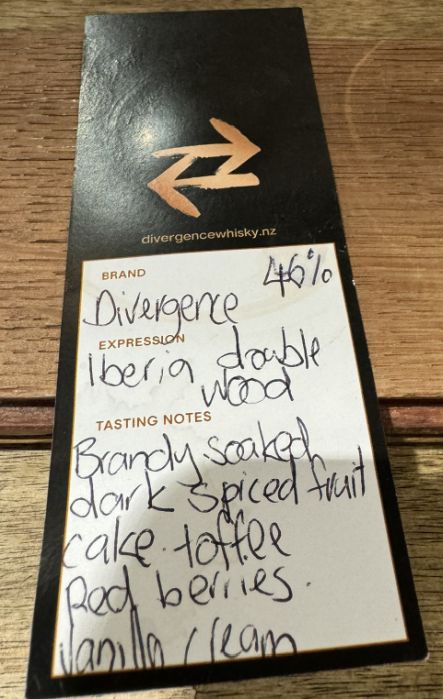 divergencewhisky.nz
BRAND
46%
Divergence
EXPRESSION
Iberia double
wood
TASTING NOTES
Brandy soaked
dark spiced fruit
cake. toffee
Red berries.
Vanilla cream